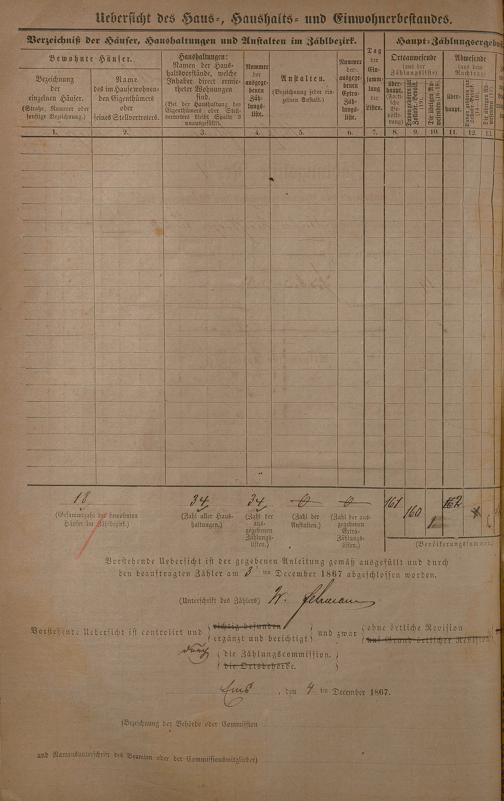 Uebersicht des Haus-, Haushalts- und Einwohnerbestandes.
Verzeichniß der Häuser, Haushaltungen und Anstalten im Zählbezirk.
Haupt-Zählungsergebn
Bewohnte Häuser.
Bezeichnung
der
einzelnen Häuser.
(Straße, Nummer oder
sonstige Bezeichnung.)
Name
des im Hause wohnen-
den Eigenthümers
oder
seines Stellvertreters.
Haushaltungen:
Namen der Haus-
haltsvorstände, welche
Inhaber direct ermie-
theter Wohnungen
sind.
(Bei der Haushaltung des
Eigenthümers oder Stell-
vertreters bleibt Spalte 3
unausgefüllt).
Nummer
der
ausgege-
benen
Zäh-
lungs-
liste.
Anstalten.
(Bezeichnung jeder ein-
zelnen Anstalt.)
Nummer
der
ausge-
gebenen
Extra-
Zäh-
lungs-
liste.
Tag
der
Ein-
samm-
lung
der
Listen.
Ortsanwesende
(aus der
Zählungsliste)
über-
haupt.
Abwesende
über-
haupt.
1. 2. 3. 4. 5. 6. 7. 8. 9. 10. 11. 12. 13.
18 34 34 0 0 161 160 1 162
(Gesammtzahl der bewohnten
Häuser im Zählbezirk.)
(Zahl aller Haus-
haltungen.)
(Zahl der
aus-
gegebenen
Zählungs-
listen.)
(Zahl der
Anstalten.)
(Zahl der aus-
gegebenen
Extra-
Zählungs-
listen.)
(Bevölkerungssumme
Vorstehende Uebersicht ist der gegebenen Anleitung gemäß ausgefüllt und durch
den beauftragten Zähler am 3 ten December 1867 abgeschlossen worden.
(Unterschrift des Zählers)
Vorstehende Uebersicht ist controlirt und (richtig befunden / ergänzt und berichtigt) und zwar (ohne örtliche Revision / auf Grund örtlicher Revision)
durch (die Zählungscommission.
(die Ortsbehörde.
Ems, den 4 ten December 1867.
(Bezeichnung der Behörde oder Commission
und Namensunterschrift des Beamten oder der Commissionsmitglieder)